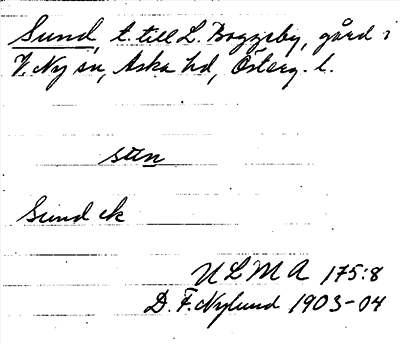 Sund, t. till L. Boggeby, gård i
V. Ny sn, Aska hd, Österg. l.
sɯn
Sund ek
ULMA 175:8
D. F. Nylund 1903-04